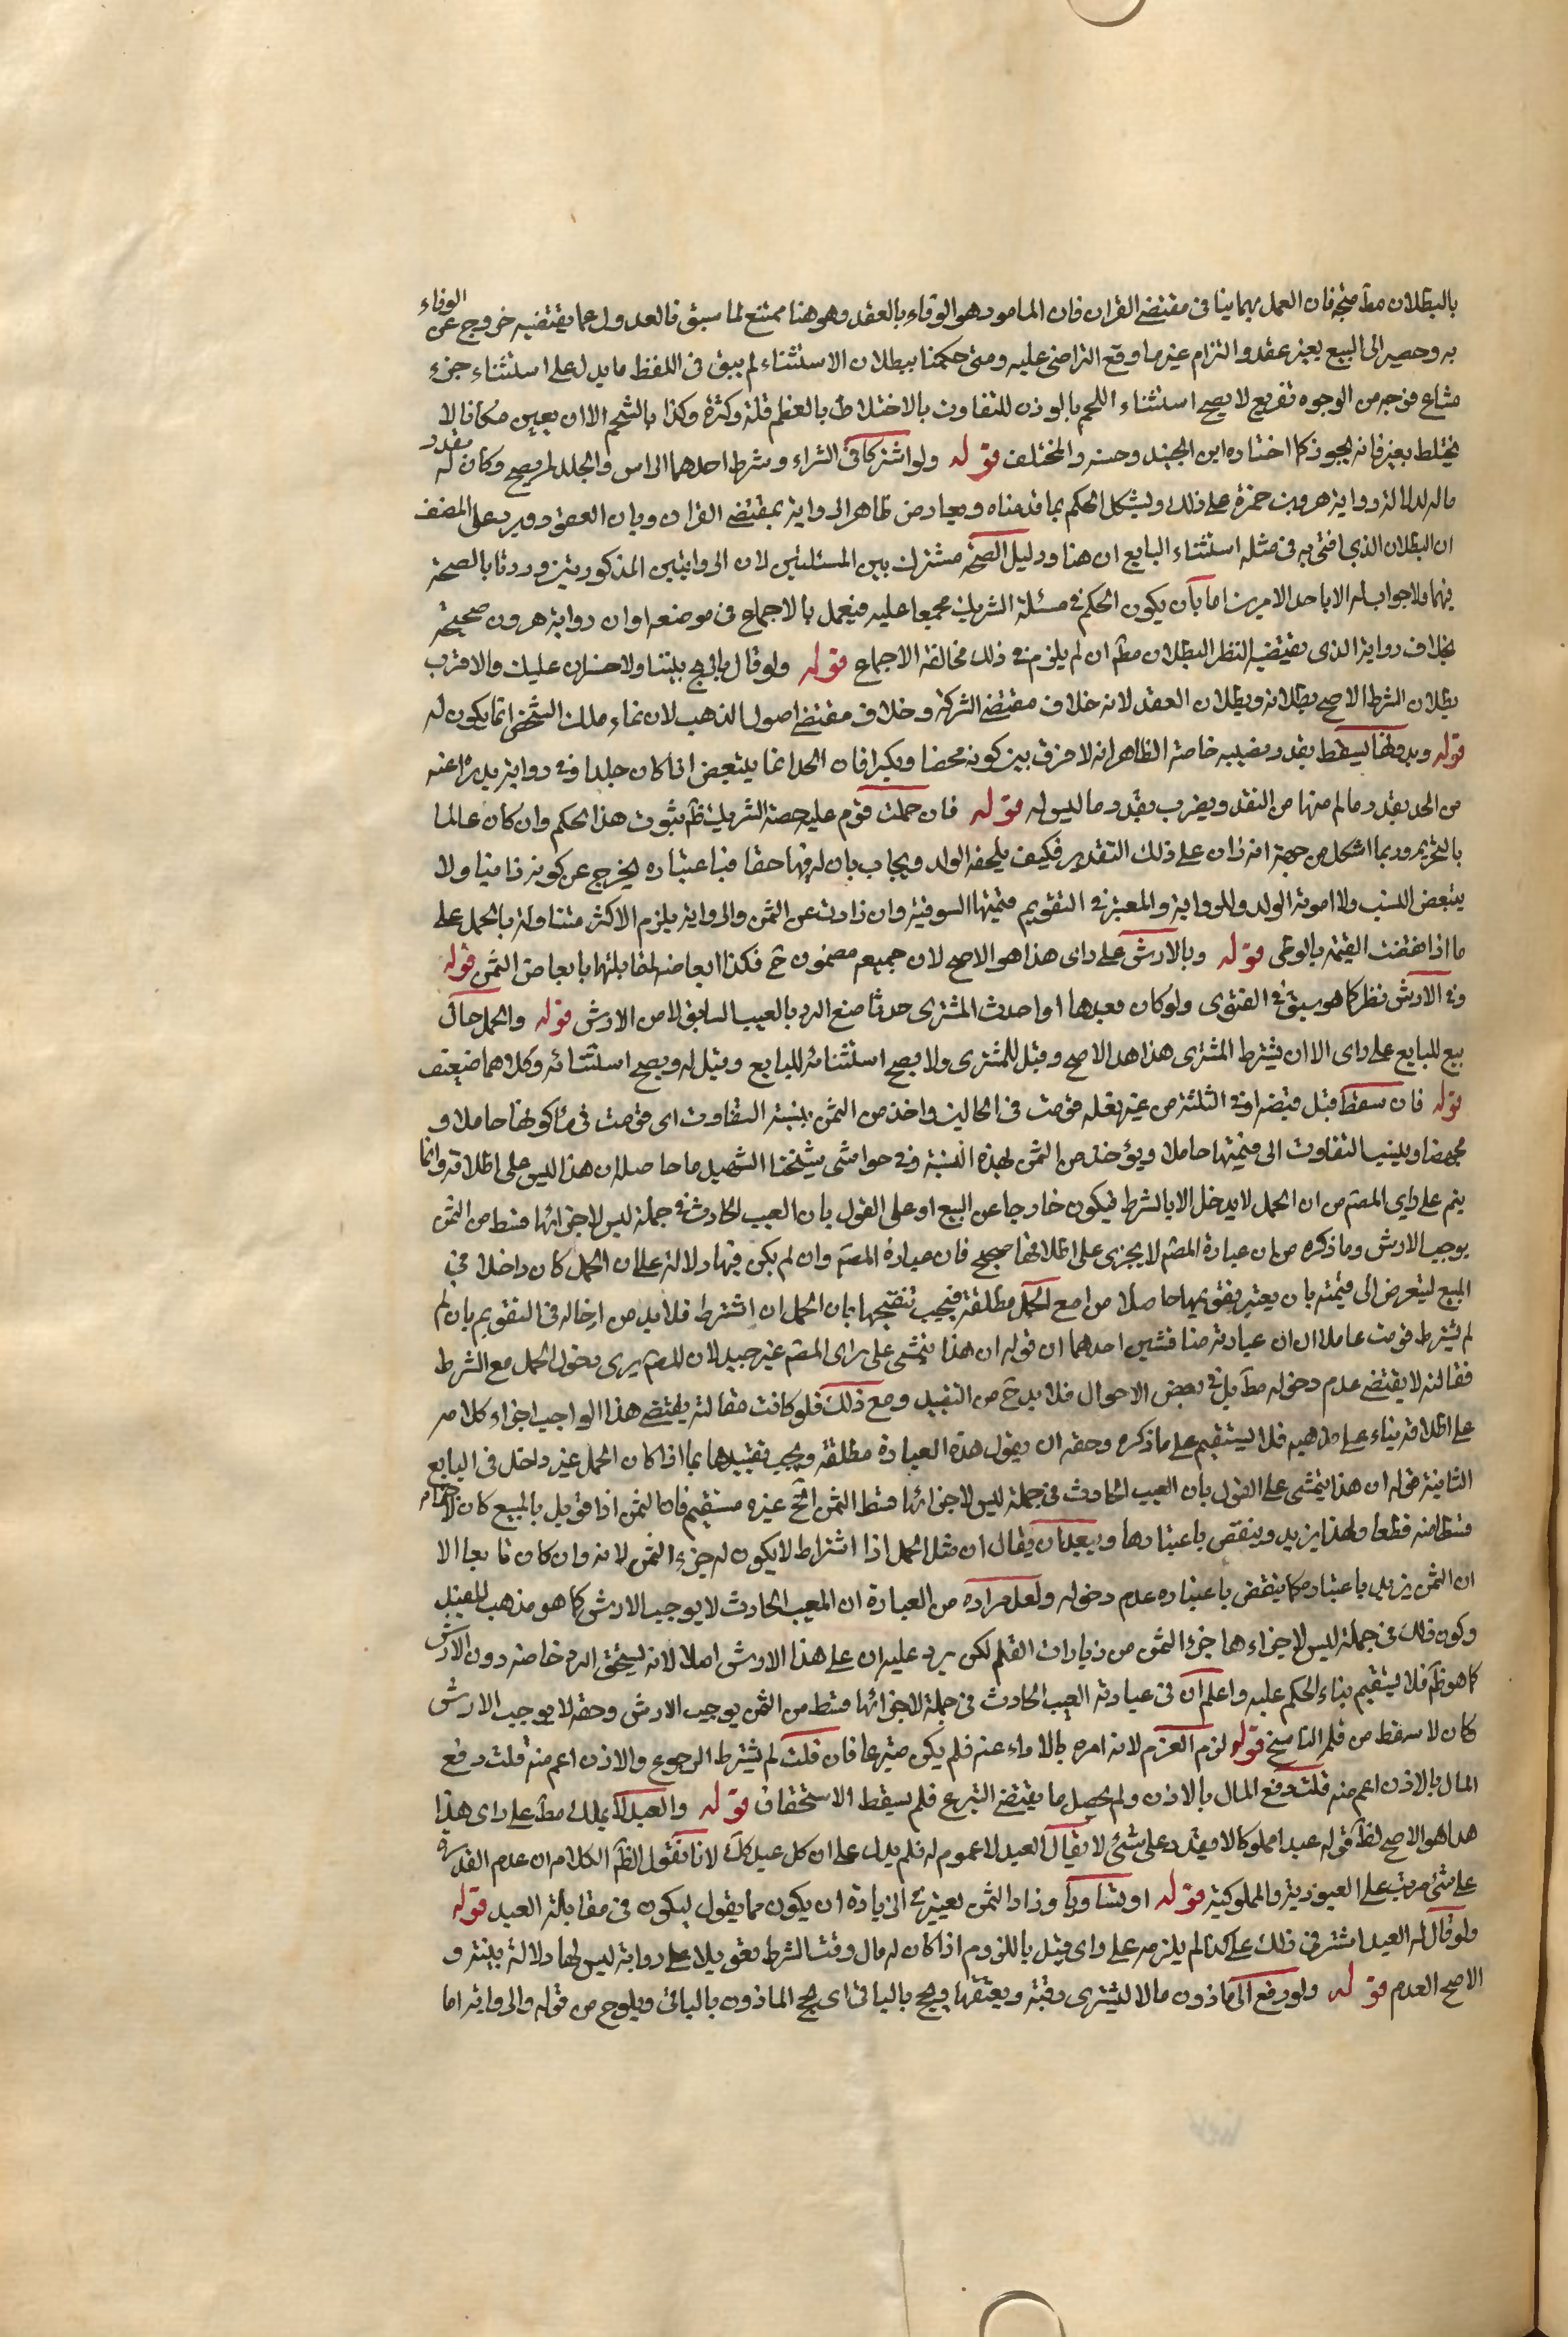 بالبطلان مطّ متجه فان العمل بهما ينافى مقتضى القران فان المامور هو الوفاء بالعقد وهو هنا ممتنع لما سبق فالعدول عما يقتضيه خروج عن الوفاء
به وحصير الى البيع بغير عقد والتزام غير ما وقع التراضى عليه ومتى حكمنا ببطلان الاستثناء لم يبق فى اللفظ ما يدل على استثناء جزء
مشاع بوجه من الوجوه تفريع لا يصح استثناء اللحم بالوزن للتفاوت بالاختلاط بالعظم قلة وكثرة وكذا بالشحم الا ان يعين مكانا لا
يختلط بغيره فانه يجوز كما اختاره ابن الجنيد وحسنه فى المختلف قوله ولو اشتركا فى الشراء وشرط احدهما الراس والجلد لم يصح وكان له بقدر
ماله لدلالة رواية هرون بن حمزة على ذلك ويشكل الحكم بما قدمناه ويعارض ظاهر الرواية بمقتضى القران وبان العقود ويرد على المصنف
ان البطلان الذى افتى به فى مثله استثناء البايع ان هنا ودليل الصحة مشترك بين المسئلتين لان الروايتين المذكورتين وردتا بالصحة
فيهما ولا جواب له الا باحد الامرين اما بان يكون الحكم فى مسئلة الشريك مجمعا عليه فيعمل بالاجماع فى موضعه او ان رواية هرون صحيحة
بخلاف رواية الذى يقتضيه النظر البطلان مطّ ان لم يلزم من ذلك مخالفة الاجماع قوله ولو قال الربح بيننا ولا خسران عليك فالاقرب
بطلان الشرط الاصح بطلانه وبطلان العقد لانه خلاف مقتضى الشركة وخلاف مقتضى اصول المذهب لان نماء ملك الشخص انما يكون له
قوله وبوطئها يسقط بقدر نصيبه خاصة الظاهر انه لا فرق بين كونه محصنا وبكرا فان الحد انما يتبعض اذا كان جلدا وفى رواية يدرأ عنه
من الحد بقدر ماله منها من النقد ويضرب بقدر ما ليس له قوله فان حملت قوم عليه حصة الشريك ظّ ثبوت هذا الحكم وان كان عالما
بالتحريم وربما اشكل من جهة انه زان على ذلك التقدير فكيف يلحقه الولد ويجاب بان له فيها حقا فباعتباره يخرج عن كونه زانيا ولا
يتبعض النسب ولا امومة الولد وللرواية والمعتبر فى التقويم قيمتها السوقية وان زادت عن الثمن والرواية يلزم الاكثر متناولة بالحمل على
ما اذا نقصت القيمة بالوطى قوله وبالارش على راى هذا هو الاصح لان جميعه مضمون حّ فكذا ابعاضه لمقابلتها بابعاض الثمن قوله
وفى الارش نظر كما هو سبق فى الفتوى ولو كان بعدها او احدث المشترى حدثا منع الرد بالعيب السابق لا من الارش قوله والحمل حال
بيع للبايع على راى الا ان يشترط المشترى هذا هو الاصح وقيل للمشترى ولا يصح استثنائه للبايع وقيل له ويصح استثنائه وكلاهما ضعيف
قوله فان سقط قبل قبضه او فى الثلثة من غير فعله قومت فى الحالين واخذ من الثمن بنسبة التفاوت اى قومت فى حال كونها حاملا و
مجهضا وينسب التفاوت الى قيمتها حاملا ويؤخذ من الثمن لهذه النسبة وفى حواشى شيخنا الشهيد ما حاصله ان هذا ليس على اطلاقه وانما
يتم على راى المصّ من ان الحمل لا يدخل الا بالشرط فيكون خارجا عن البيع او على القول بان العيب الحادث فى جملة ليس لاجزائها قسط من الثمن
يوجب الارش وما ذكره من ان عبارة المصّ لا يجرى على اطلاقها صحيح فان عبارة المصّ وان لم يكن فيها دلالة على ان الحمل كان داخلا فى
المبيع ليتعرض الى قيمته بان يعتبر تقويمها حاصلا من امع الحمل مطلقة فيجب تنقيحها بان الحمل ان اشترط فلا بد من ادخاله فى التقويم بان لم
لم يشترط قومت عاملا ان ان عبارته مناقشتين احدهما ان قوله ان هذا يتمشى على راى المصّ غير جيد لان المصّ يرى دخول الحمل مع الشرط
فمقالته لا يقتضى عدم دخوله مطّ بل فى بعض الاحوال فلا بد حّ من التقييد ومع ذلك فلو كانت مقالته يقتضى هذا الواجب اجراء كلامه
على اطلاقه بناء على مذهبه فلا يستقيم على ما ذكره وحقه ان يقول هذه العبارة مطلقة ويجب تقييدها بما اذا كان الحمل غير داخل فى البايع
الثانية قوله ان هذا يتمشى على القول بان العيب الحادث فى جملة ليس لاجزائها قسط الثمن الخّ غيره مستقيم فان الثمن اذا قوبل بالمبيع كان لاجزائه
قسطا منه قطعا ولهذا يزيد وينقص باعتبارها ويبعد ان يقال ان مثل الحمل اذا اشتراط لا يكون له جزء الثمن لانه وان كان تابعا الا
ان الثمن يزيد باعتباره كما ينقص باعتباره عدم دخوله ولعل مراده من العبارة ان المعيب الحادث لا يوجب الارش كما هو مذهب للمفيد
وكون ذلك فى جملة ليس لاجزاءها جزء الثمن من زيادات القلم لكن يرد عليه ان على هذا الارش اصلا لانه يستحق الرد خاصة دون الارش
كما هو ظّ فلا يستقيم بناء الحكم عليه واعلم ان فى عبارته العيب الحادث فى جملة لاجزائها قسط من الثمن يوجب الارش وحقه لا يوجب الارش
كان لا سقط من قلم الناسخ قوله لزم العزم لانه امره بالاداء عنه فلم يكن متبرعا فان قلت لم يشترط الرجوع والاذن اعم منه قلت دفع
المال بالاذن اعم منه قلت دفع المال بالاذن ولم يحصل ما يقتضى التبرع فلم يسقط الاستحقاق قوله والعبد لا يملك مطّ على راى هذا
هذا هو الاصح لظّ قوله عبدا مملوكا لا يقدر على شئ لا يقال العبد لا عموم له فلم يدل على ان كل عبد كك لانا نقول الظّ الكلام ان عدم القدرة
على شئ مرتب على العبودية والمملوكية قوله او يتساويا وزاد الثمن يعتبر فى الزيادة ان يكون مما يقول ليكون فى مقابلة العبد قوله
ولو قال له العبد اشترنى ذلك على كذا لم يلزمه على راى قيل باللزوم اذا كان له مال وقت الشرط تعويلا على رواية ليس لها دلالة بينة و
الاصح العدم قوله ولو دفع الى ماذون مالا ليشترى رقبة ويعتقها ويحج بالباقى اى يحج الماذون بالباقى ويلوح من قوله والرواية اما